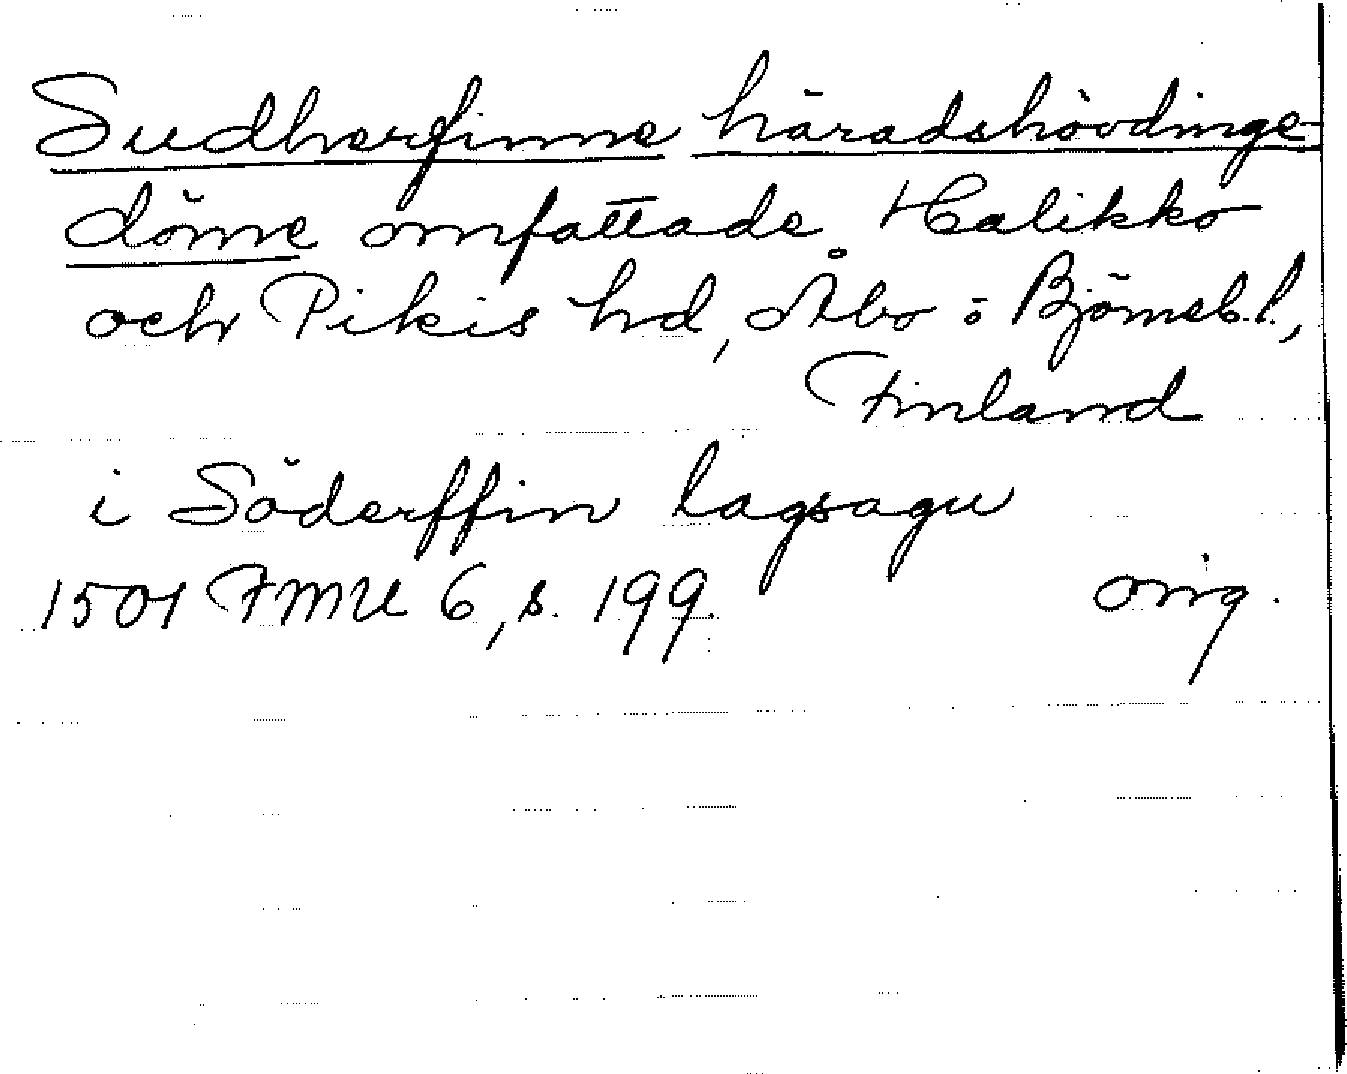 Sudherfinne häradshövdinge-
döme omfattade Halikko
och Pikis hd, Åbo o Björneb. l.,
Finland
i Söderffin lagsagu
1501 FMU 6, s. 199. orig.